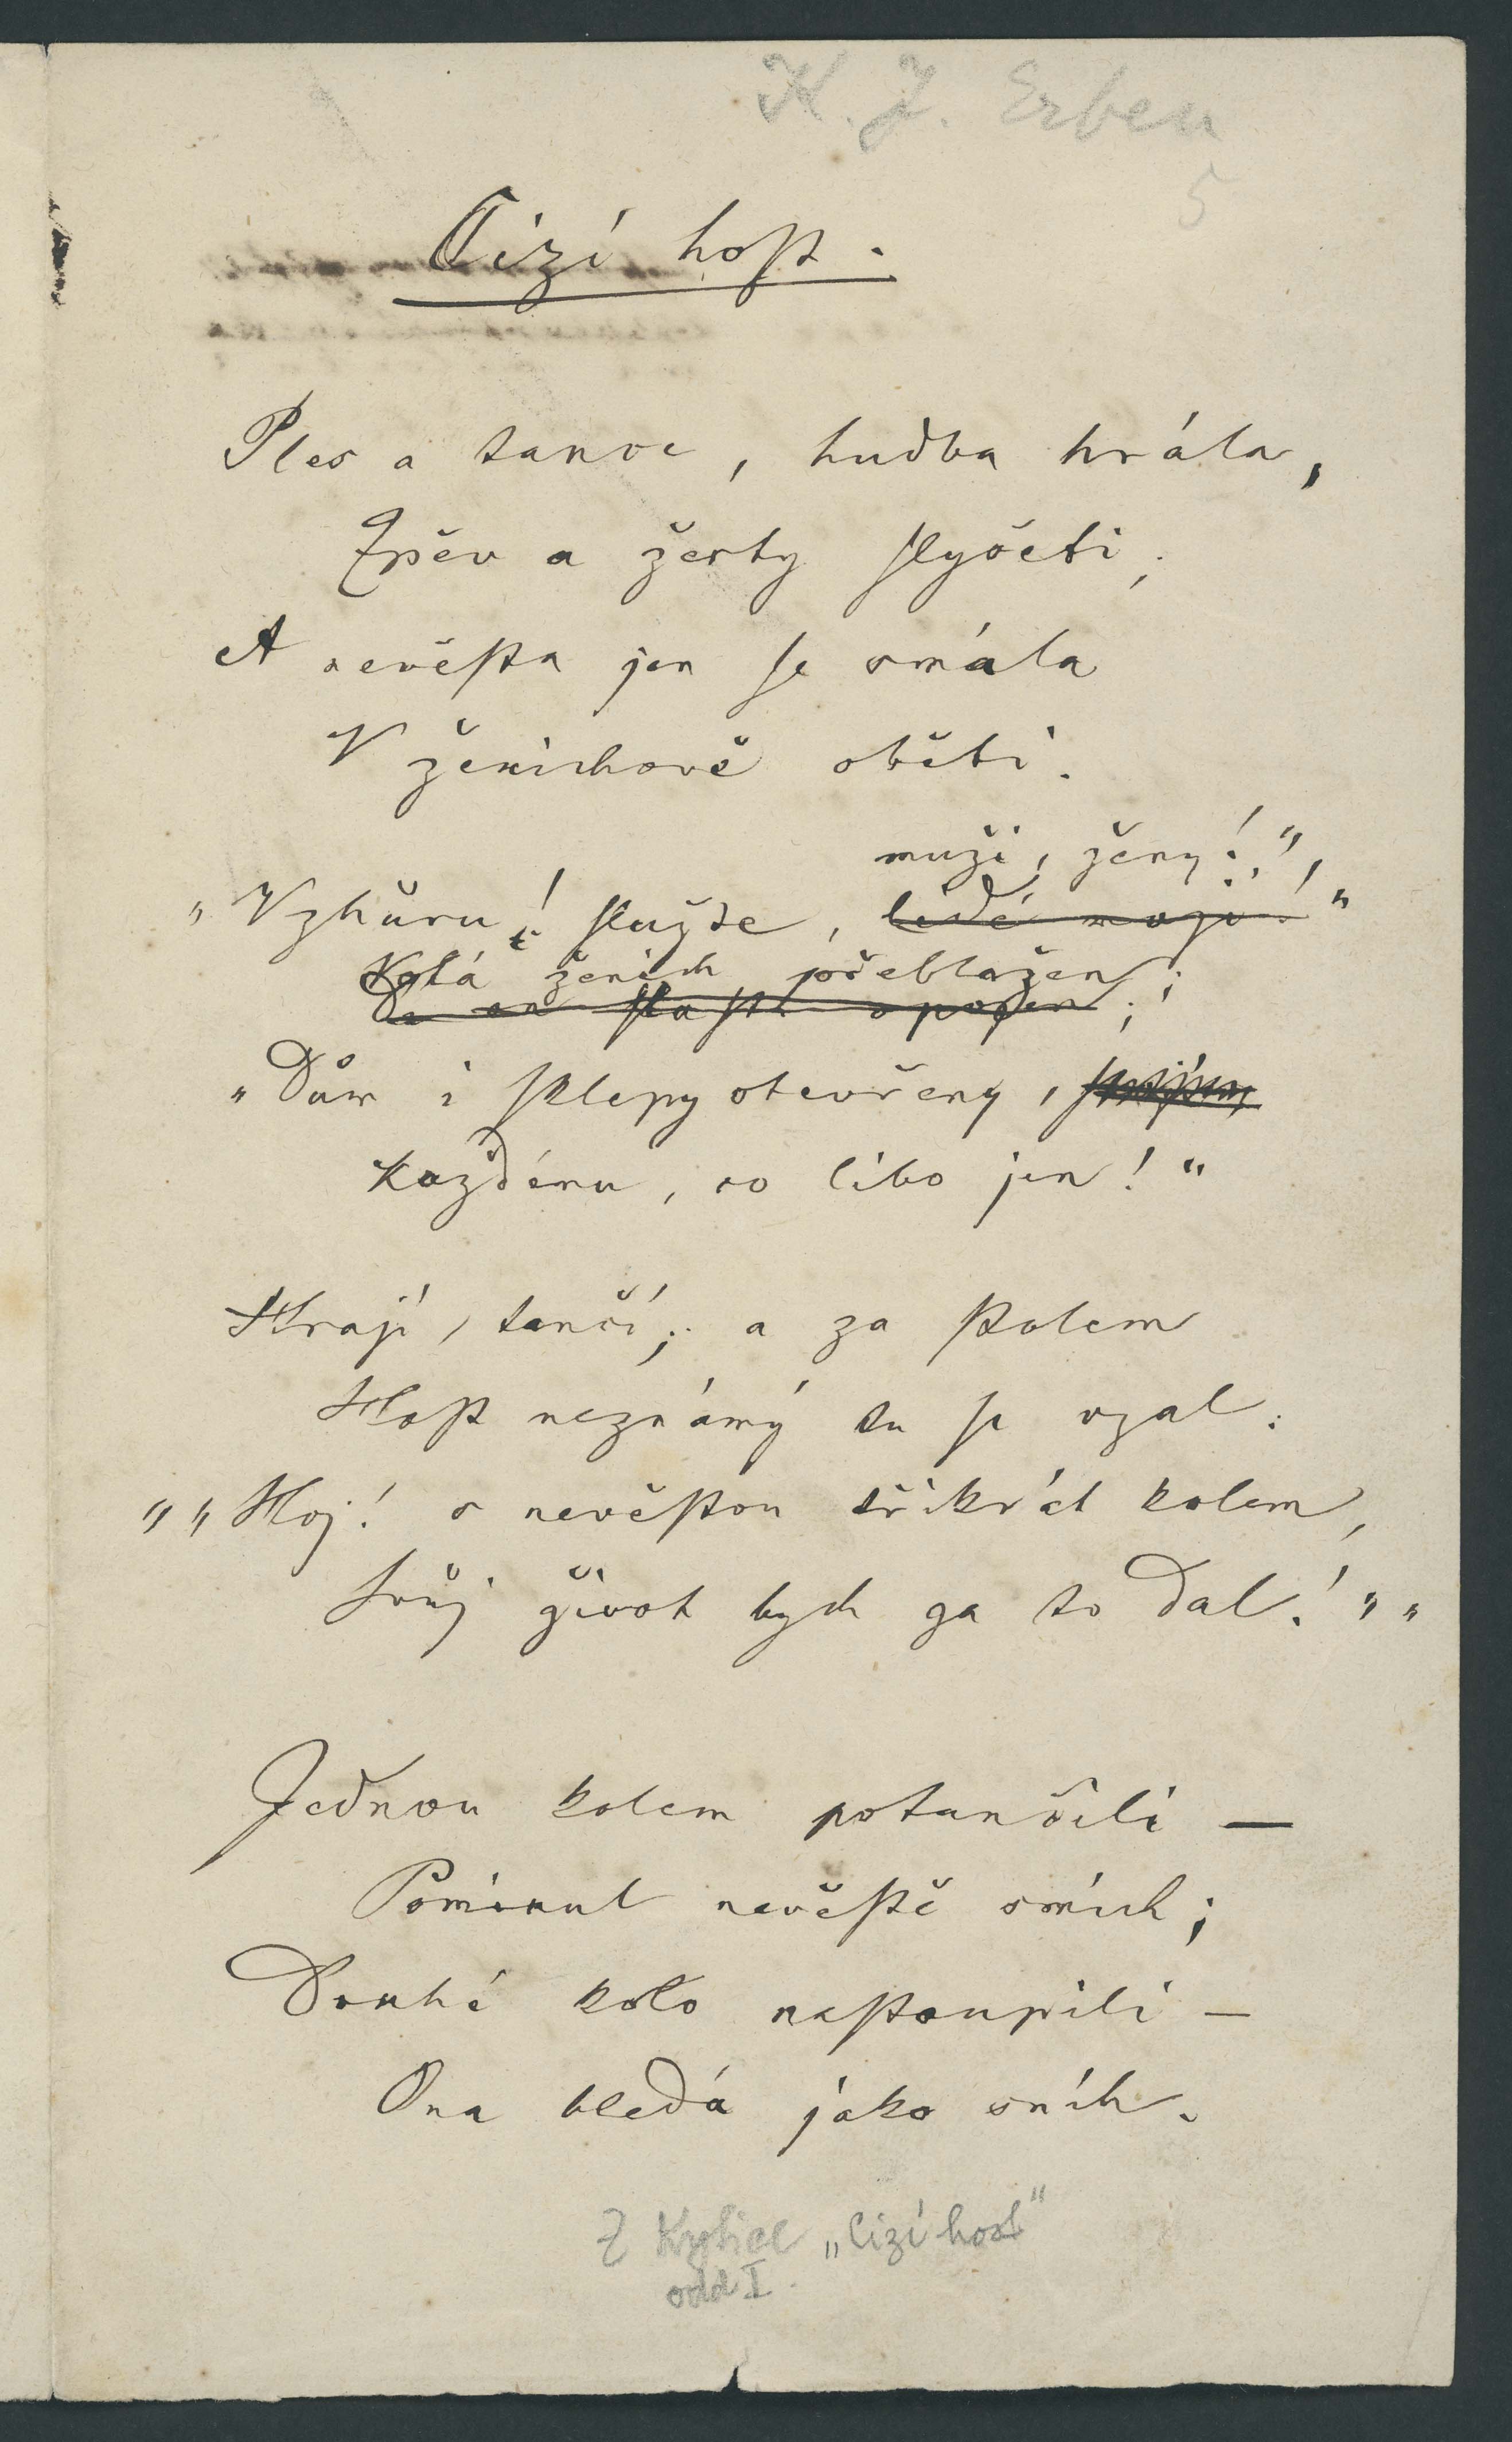 K. J. Erben
5
Cizí host.
Ples a tance, hudba hrála,
Zpěv a žerty slyšeti;
A nevěsta jen se smála
V ženichově oběti.
muži, ženy!",
„Vzhůru! služte, lidé moji!"
Volá ženich přeblažen;
On an slastí opojen;
„Dům i sklepy otevřeny,
Každému, co libo jen!"
Hrají, tančí; a za stolem
Host neznámý tu se vzal:
„„Hoj! s nevěstou třikrát kolem,
Svůj život bych za to dal!""
Jednou kolem potančili —
Pominul nevěstě smích;
Druhé kolo nastoupili —
Ona bledá jako sníh.
Z Kytice „Cizí host"
odd I.